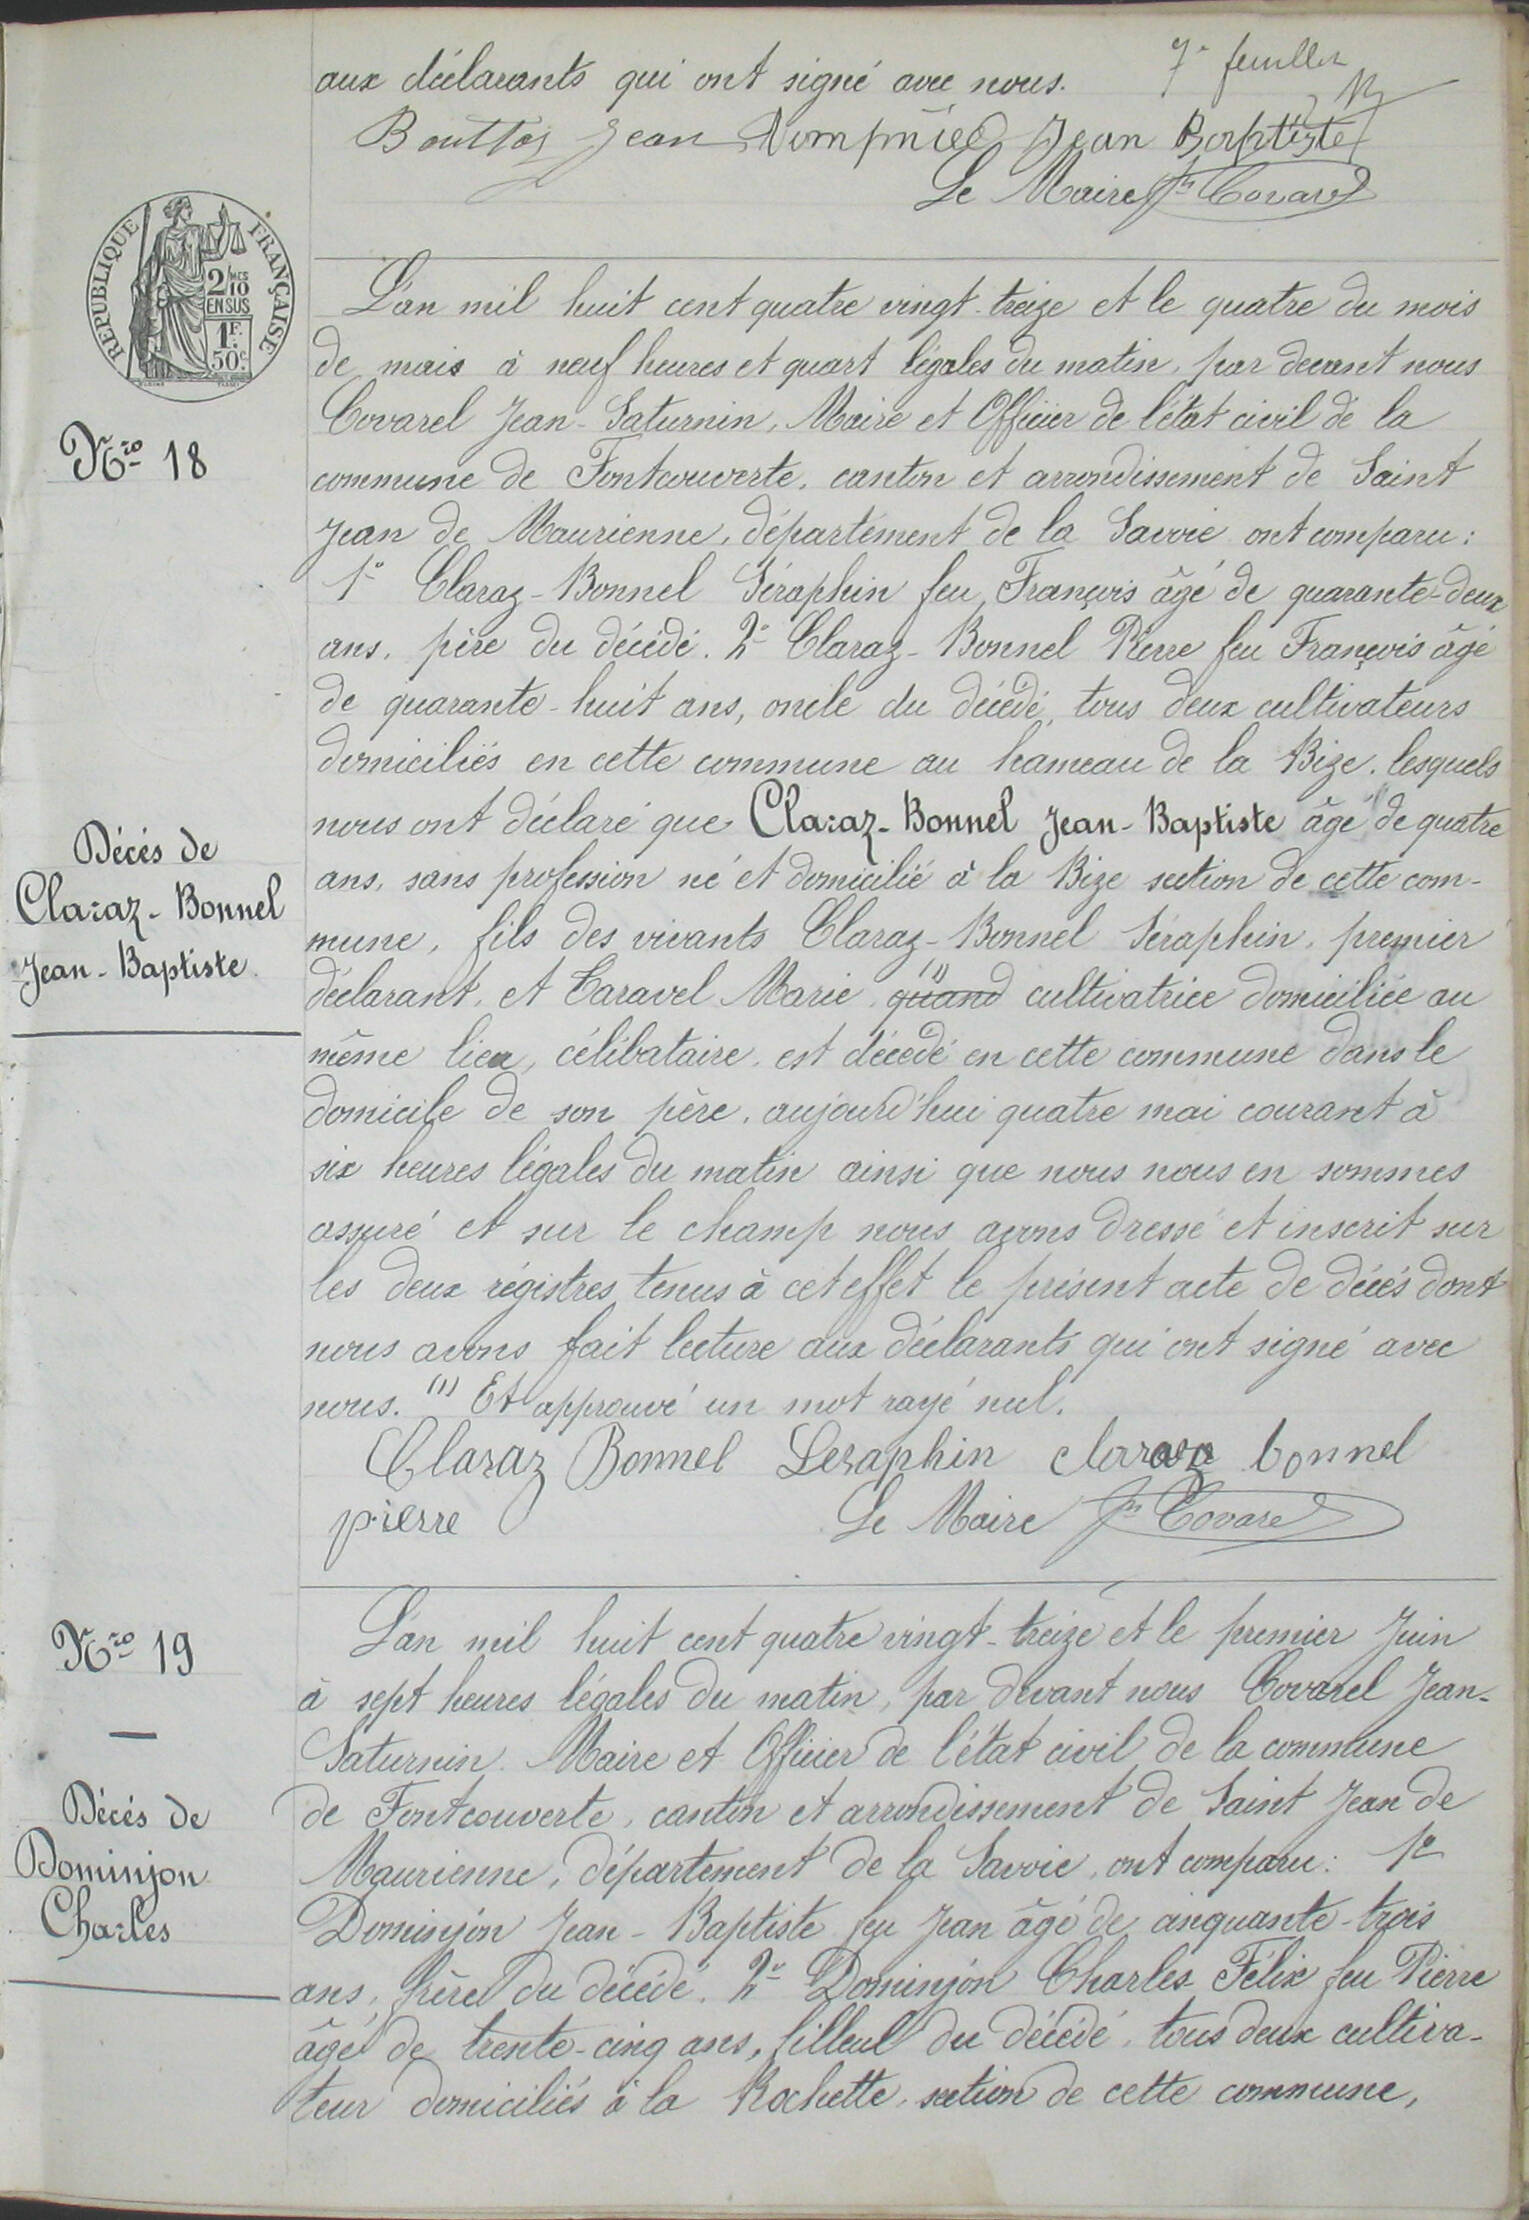 7e feuillet
aux déclarants qui ont signé avec nous.
Bouttaz Jean Dompnied Jean Baptiste
Le Maire Jn Covarel
REPUBLIQUE FRANÇAISE
2/10 MES
EN SUS
1F.
50c.
L'an mil huit cent quatre vingt-treize et le quatre du mois
de mais à neuf heures et quart légales du matin, par devant nous
Covarel Jean-Saturnin, Maire et Officier de l'état civil de la
Nro 18
commune de Fontcouverte, canton et arrondissement de Saint
Jean de Maurienne, département de la Savoie ont comparu:
1o Claraz-Bonnel Séraphin feu François âgé de quarante-deux
ans, père du décédé. 2o Claraz-Bonnel Pierre feu François âgé
de quarante-huit ans, oncle du décédé, tous deux cultivateurs
domiciliés en cette commune au hameau de la Bize, lesquels
nous ont déclaré que Claraz-Bonnel Jean-Baptiste âgé de quatre
Décés de
Claraz-Bonnel
Jean-Baptiste
ans, sans profession né et domicilié à la Bize section de cette com-
mune, fils des vivants Claraz-Bonnel Séraphin, premier
déclarant, et Caravel Marie (1) quand cultivatrice domiciliée au
même lieu, célibataire, est décédé en cette commune dans le
domicile de son père, aujourd'hui quatre mai courant à
six heures légales du matin ainsi que nous nous en sommes
assuré et sur le champ nous avons dressé et inscrit sur
les deux régistres tenus à cet effet le présent acte de décés dont
nous avons fait lecture aux déclarants qui ont signé avec
nous. (1) Et approuvé un mot rayé nul.
Claraz Bonnel Seraphin claraz bonnel
pierre Le Maire Jn Covarel
Nro 19
L'an mil huit cent quatre vingt-treize et le premier Juin
à sept heures légales du matin, par devant nous Covarel Jean-
Saturnin Maire et Officier de l'état civil de la commune
de Fontcouverte, canton et arrondissement de Saint Jean de
Maurienne, département de la Savoie, ont comparu: 1o
Décés de
Dominjon
Charles
Dominjon Jean-Baptiste feu Jean âgé de cinquante-trois
ans, frère du décédé. 2o Dominjon Charles Félix feu Pierre
âgé de trente-cinq ans, filleul du décédé, tous deux cultiva-
teur domiciliés à la Rochette, section de cette commune,